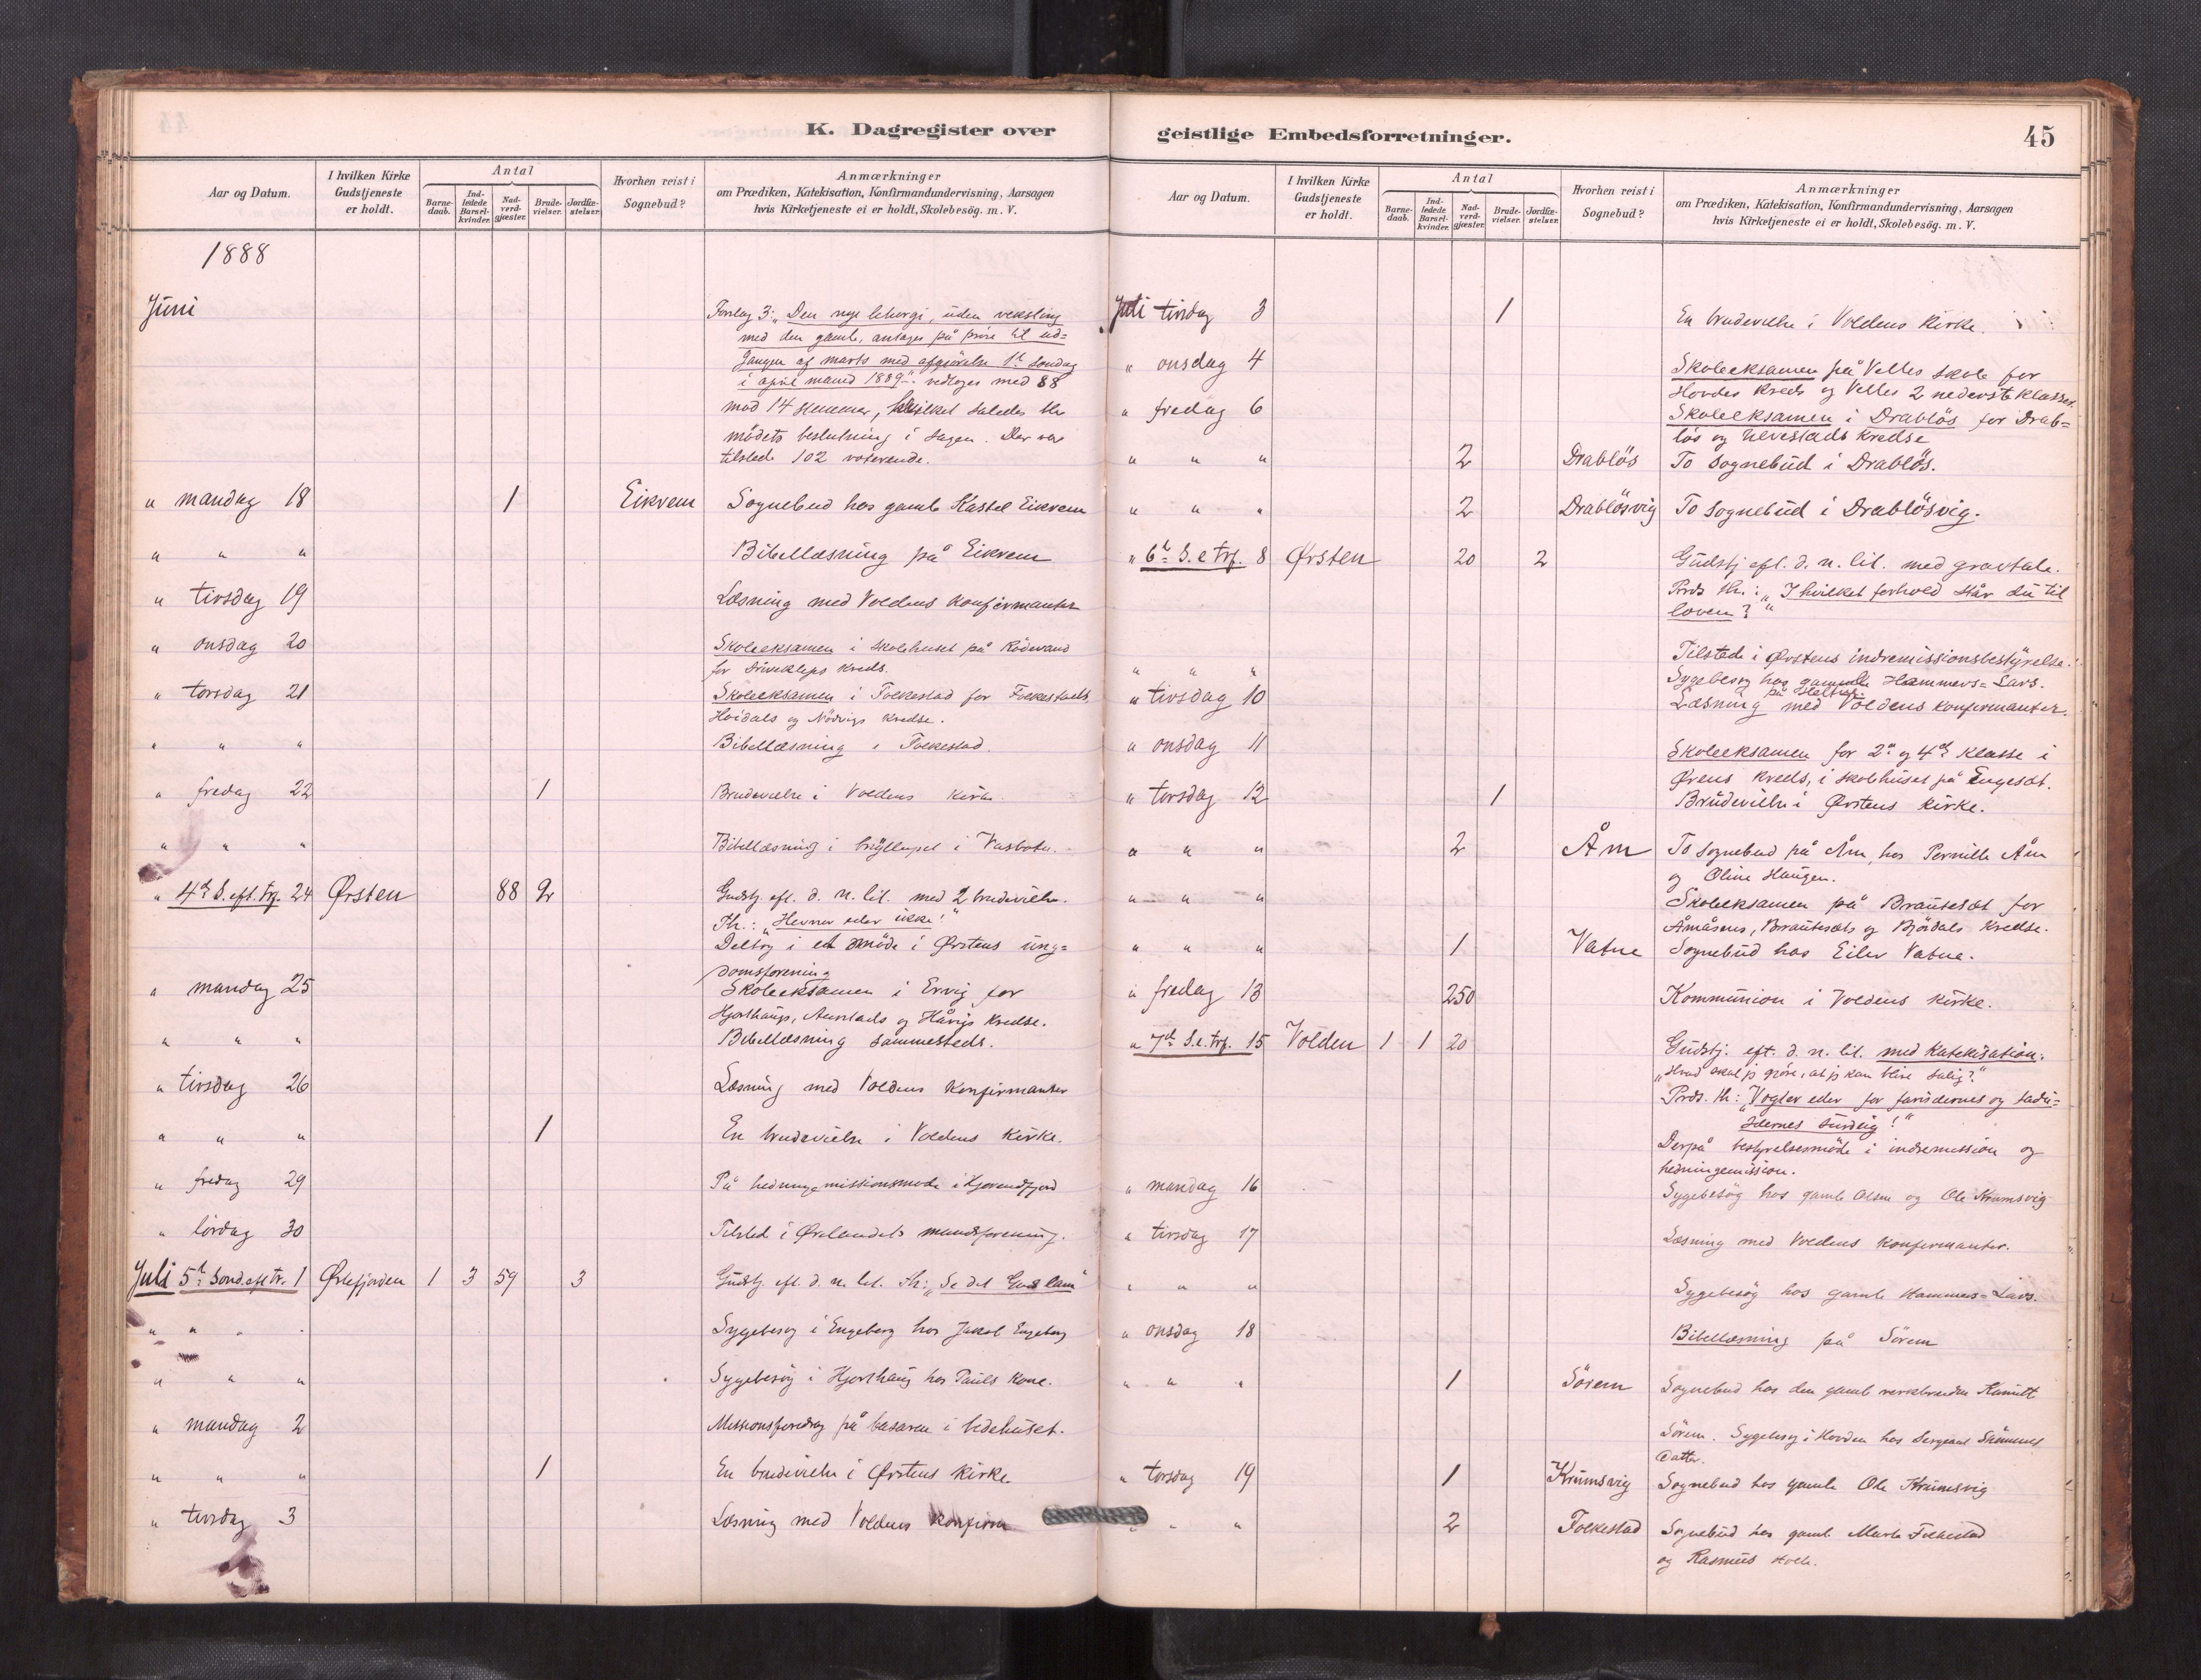 K. Dagregister over
Aar og Datum.
I hvilken Kirke
Gudstjeneste
er holdt.
Antal
Barne-
daab.
Ind-
ledede
Barsel-
kvinder.
Nad-
verd-
gjæster.
Brude-
vielser.
Jordfæ-
stelser.
Hvorhen reist i
Sognebud?
Anmærkninger
om Prædiken, Katekisation, Konfirmandundervisning, Aarsagen
hvis Kirketjeneste ei er holdt, Skolebesög. m. V.
1888
Juni
Forslag 3: „Den nye liturgi, uden veksling
med den gamle, antages på prøve til ud-
gangen af marts med afgjørelse 1ste søndag
i april måned 1889“. vedtoges med 88
mod 14 stemmer, hvilket således blev
mödets beslutning i sagen. Der var
tilstede 102 voterende.
" mandag 18 1 Eikrem Sognebud hos gamle Kastel Eikrem
" " " Bibellæsning på Eikrem
" tirsdag 19 Læsning med Voldens konfirmanter
" onsdag 20 Skoleeksamen i skolehuset på Rödevand
for kreds.
" torsdag 21 Skoleeksamen i Folkestad for Folkestads,
Hoidals og Nödvigs kredse.
" " " Bibellæsning i Folkestad.
" fredag 22 1 Brudevielse i Voldens kirke.
" " " Bibellæsning i bryllupet i Vasbotn.
" 4de S. eft. trf. 24 Ørsten 88 2 Gudstj. eft. d. n. lit. med 2 brudevielser.
Th.: „Hevner eller ikke!“
Deltog i et möde i Ørstens ung=
domsforening
" mandag 25 Skoleeksamen i Ervig for
Hjorthaugs, Aurstads og Håvigs kredse.
" " " Bibellæsning sammesteds.
" tirsdag 26 Læsning med Voldens konfirmanter
" " " 1 En brudevielse i Voldens kirke.
" fredag 29 På hedningemissionsmöde i Hjørendfjord
" lördag 30 Tilsted i Ørslandets mandsforening.
Juli 5te Sönd. eft tr. 1 Østefjorden 1 3 59 3 Gudstj. eft. d. n. lit. Th: „Se det Guds lam“
" " " Sygebesög i Engeberg hos Jakob Engeberg
" " " Sygebesög i Hjorthaug hos Pauls kone.
" mandag 2 Missionsforedrag på basaren i bedehuset.
" " " 1 En brudevielse i Ørstens kirke.
" tirsdag 3 Læsning med Voldens konfirm
geistlige Embedsforretninger.
45
Aar og Datum.
I hvilken Kirke
Gudstjeneste
er holdt.
Antal
Barne-
daab.
Ind-
ledede
Barsel-
kvinder.
Nad-
verd-
gjæster.
Brude-
vielser.
Jordfæ-
stelser.
Hvorhen reist i
Sognebud?
Anmærkninger
om Prædiken, Katekisation, Konfirmandundervisning, Aarsagen
hvis Kirketjeneste ei er holdt, Skolebesög. m. V.
Juli tirsdag 3 1 En brudevielse i Voldens kirke.
" onsdag 4 Skoleeksamen på Velles skole for
Hovdes kreds og Velles 2 nederste klasser.
" fredag 6 Skoleeksamen i Drablös for Drab=
lös og Ulvestads kredse
" " " 2 Drablös To sognebud i Drablös.
" " " 2 Drablösvig To sognebud i Drablösvig.
" 6te S. e trf. 8 Ørsten 20 2 Gudstj eft. d. n. lit. med gravtale.
Prds th.: „I hvilket forhold står du til
loven?“
Tilstede i Ørstens indremissionsbestyrelse.
" " " Sygebesög hos gamle Hammers=Lars.
" tirsdag 10 Læsning med Voldens konfirmanter.
" onsdag 11 Skoleeksamen for 2den og 4de klasse i
Ørens kreds, i skolehuset på Engeset.
" torsdag 12 1 Brudevielse i Ørstens kirke.
" " " 2 Åm To sognebud på Åm, hos Pernille Åm
og Oline Haugen.
" " " Skoleeksamen på Brautesæt for
Åmåsens, Brautesæts og Björdals kredse.
" " " 1 Vatne Sognebud hos Eilev Vatne.
" fredag 13 250 Kommunion i Voldens kirke.
" 7de S. e. trf. 15 Volden 1 1 20 Gudstj. eft. d. n. lit. med katekisation:
„Hvad skal jeg gjöre, at jeg kan blive salig?“
Prds. th: „Vogter eder for farisæernes og sadu=
sæernes surdeig!“
Derpå bestyrelsesmöde i indremission og
hedningemission.
" mandag 16 Sygebesög hos gamle Olsen og Ole Krumsvig
" tirsdag 17 Læsning med Voldens konfirmanter.
" " " Sygebesög hos gamle Hammers=Lars.
" onsdag 18 Bibellæsning på Sörem
" " " 1 Sörem Sognebud hos den gamle Kanutt
Sörem. Sygebesög i Hovden hos Sergeant
datter.
" torsdag 19 1 Krumsvig Sognebud hos gamle Ole Krumsvig
" " " 2 Folkestad Sognebud hos gamle Marte Folkestad
og Rasmus Holle.